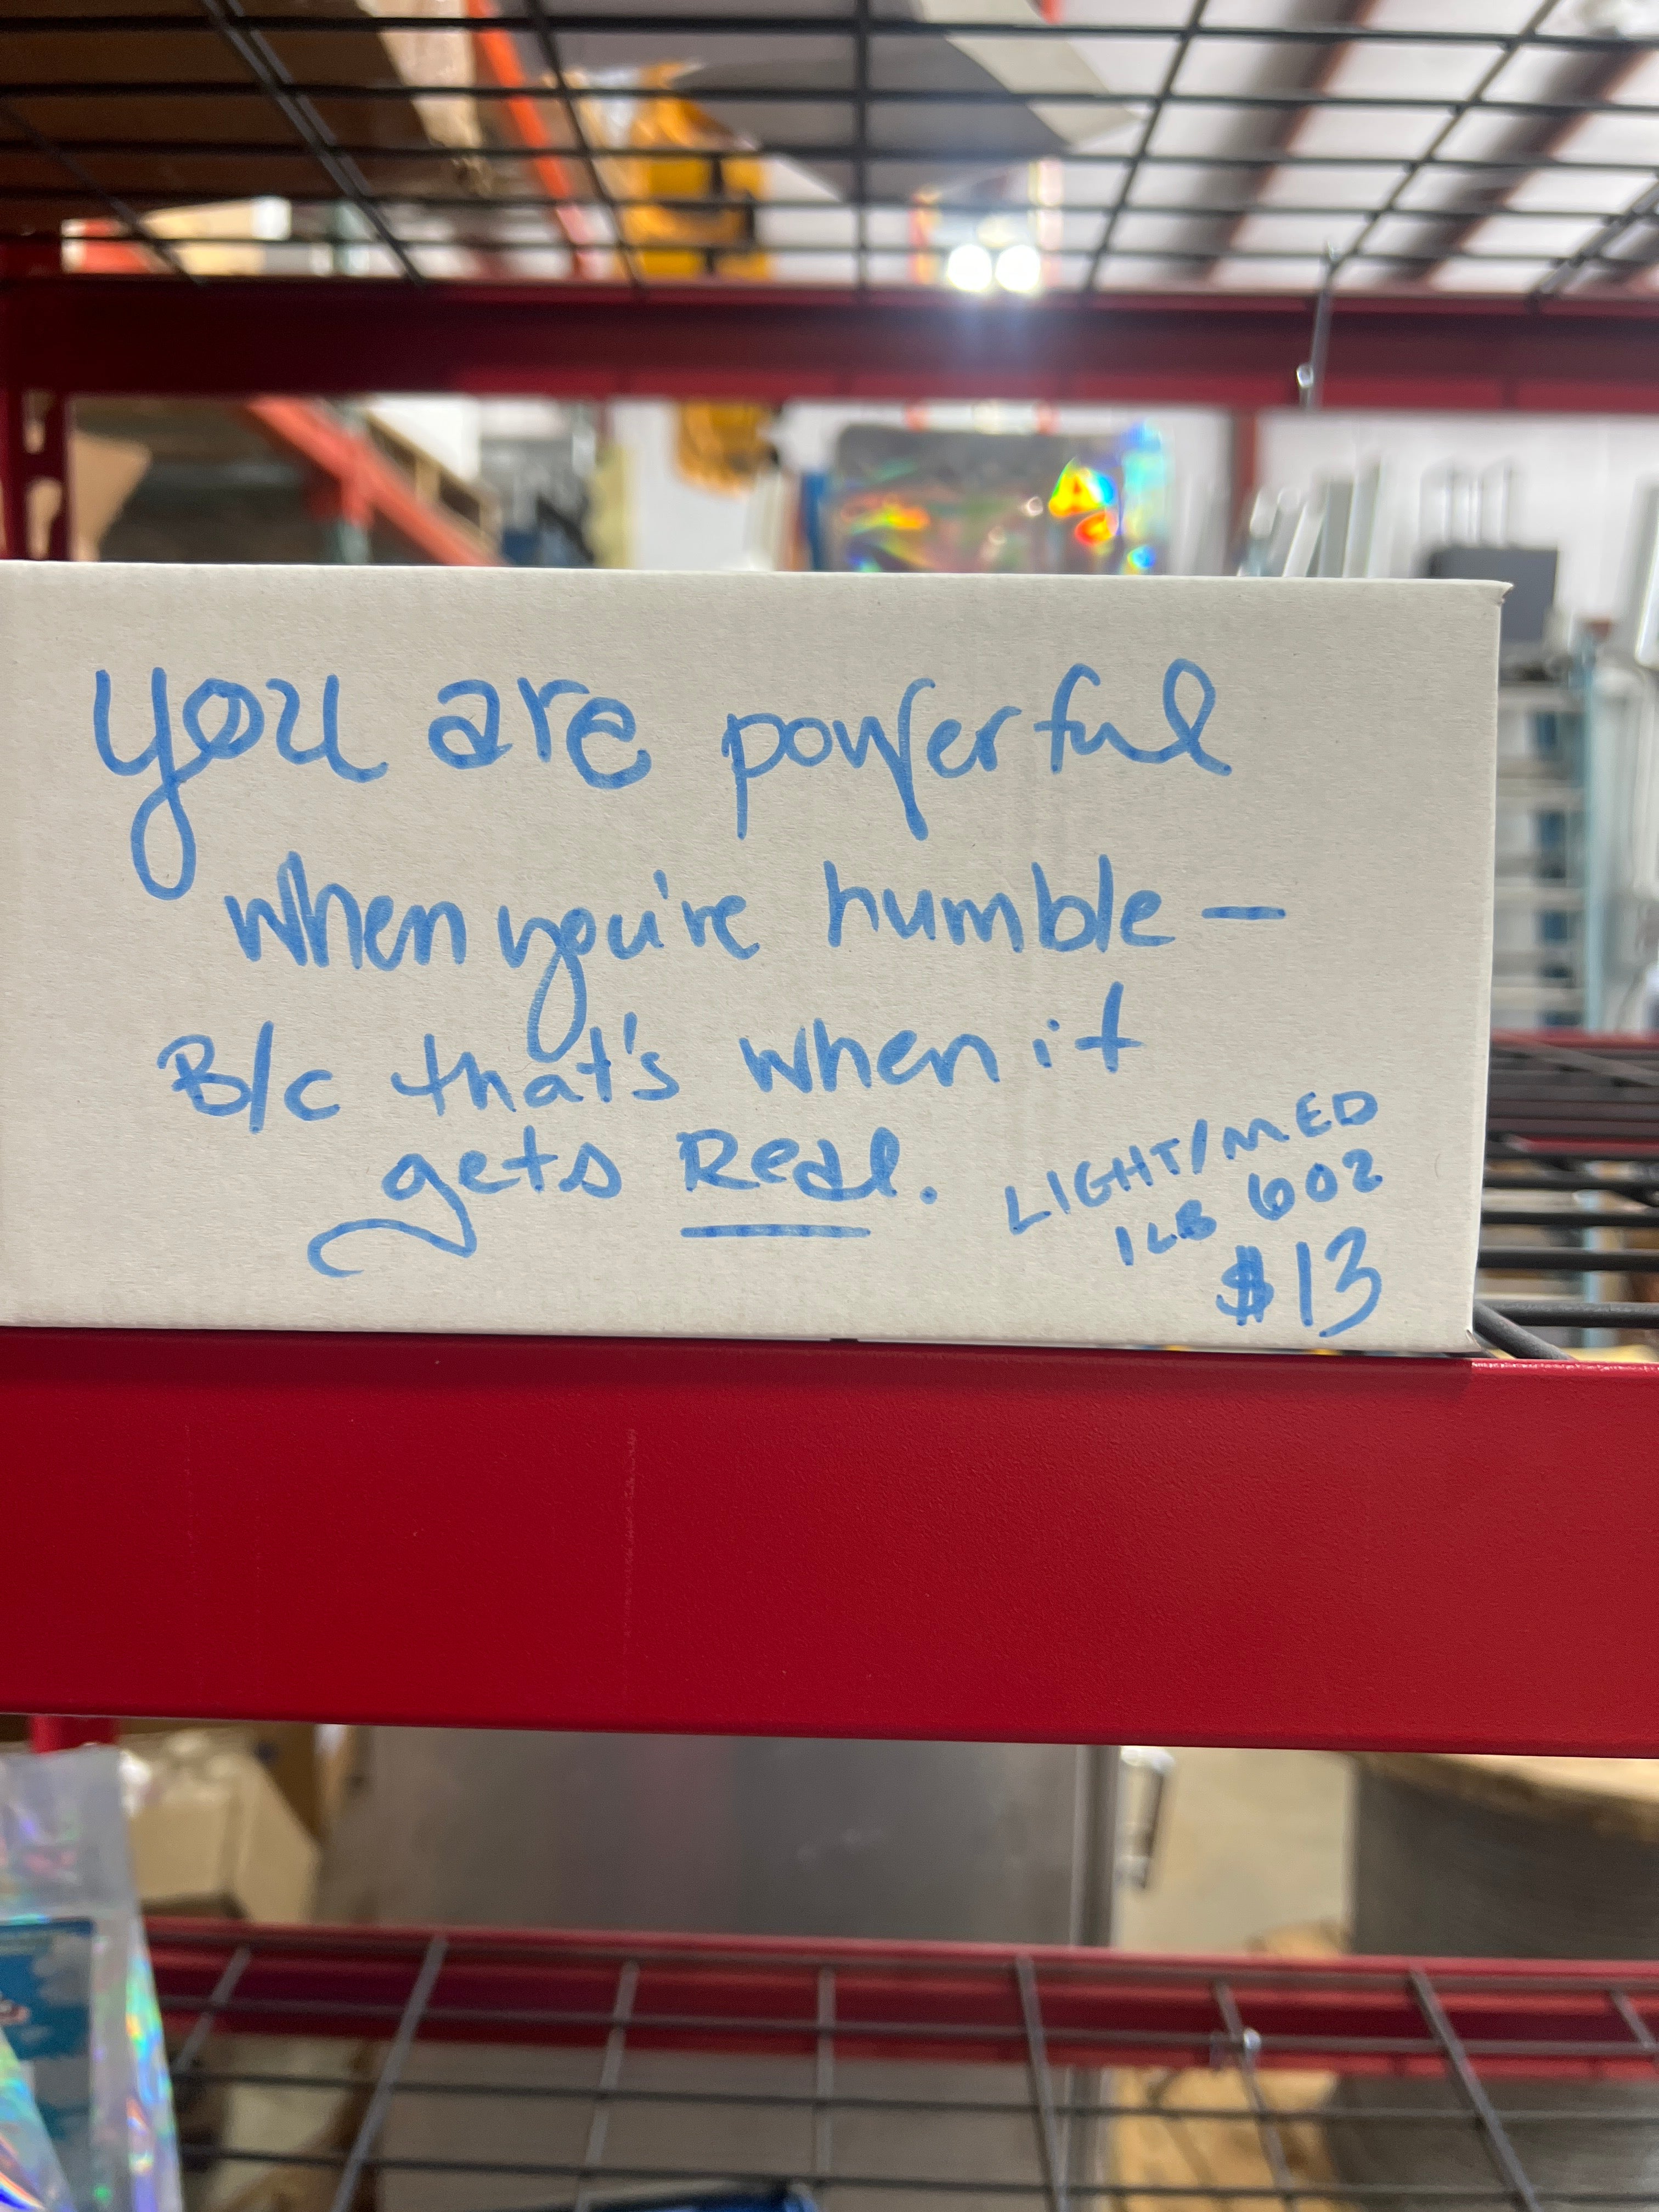 you are powerful
when you're humble —
B/c that's when it
gets Real.
LIGHT/MED
1 LB 6OZ
$13